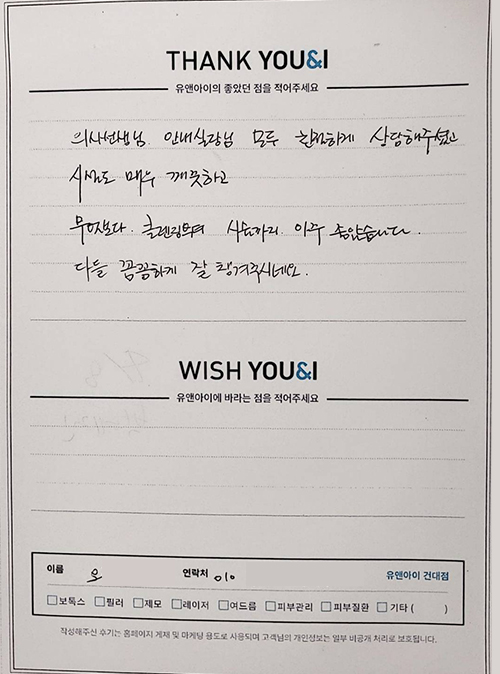 THANK YOU&I
유앤아이의 좋았던 점을 적어주세요
의사선생님, 안내실장님 모두 친절하게 상담해주셨고
시설도 매우 깨끗하고
무엇보다. 클렌징부터 시술까지. 아주 좋았습니다.
다들 꼼꼼하게 잘 챙겨주시네요.
WISH YOU&I
유앤아이에 바라는 점을 적어주세요
이름 오 연락처 010 유앤아이 건대점
□보톡스 □필러 □제모 □레이저 □여드름 □피부관리 □피부질환 □기타 ( )
작성해주신 후기는 홈페이지 게재 및 마케팅 용도로 사용되며 고객님의 개인정보는 일부 비공개 처리로 보호됩니다.